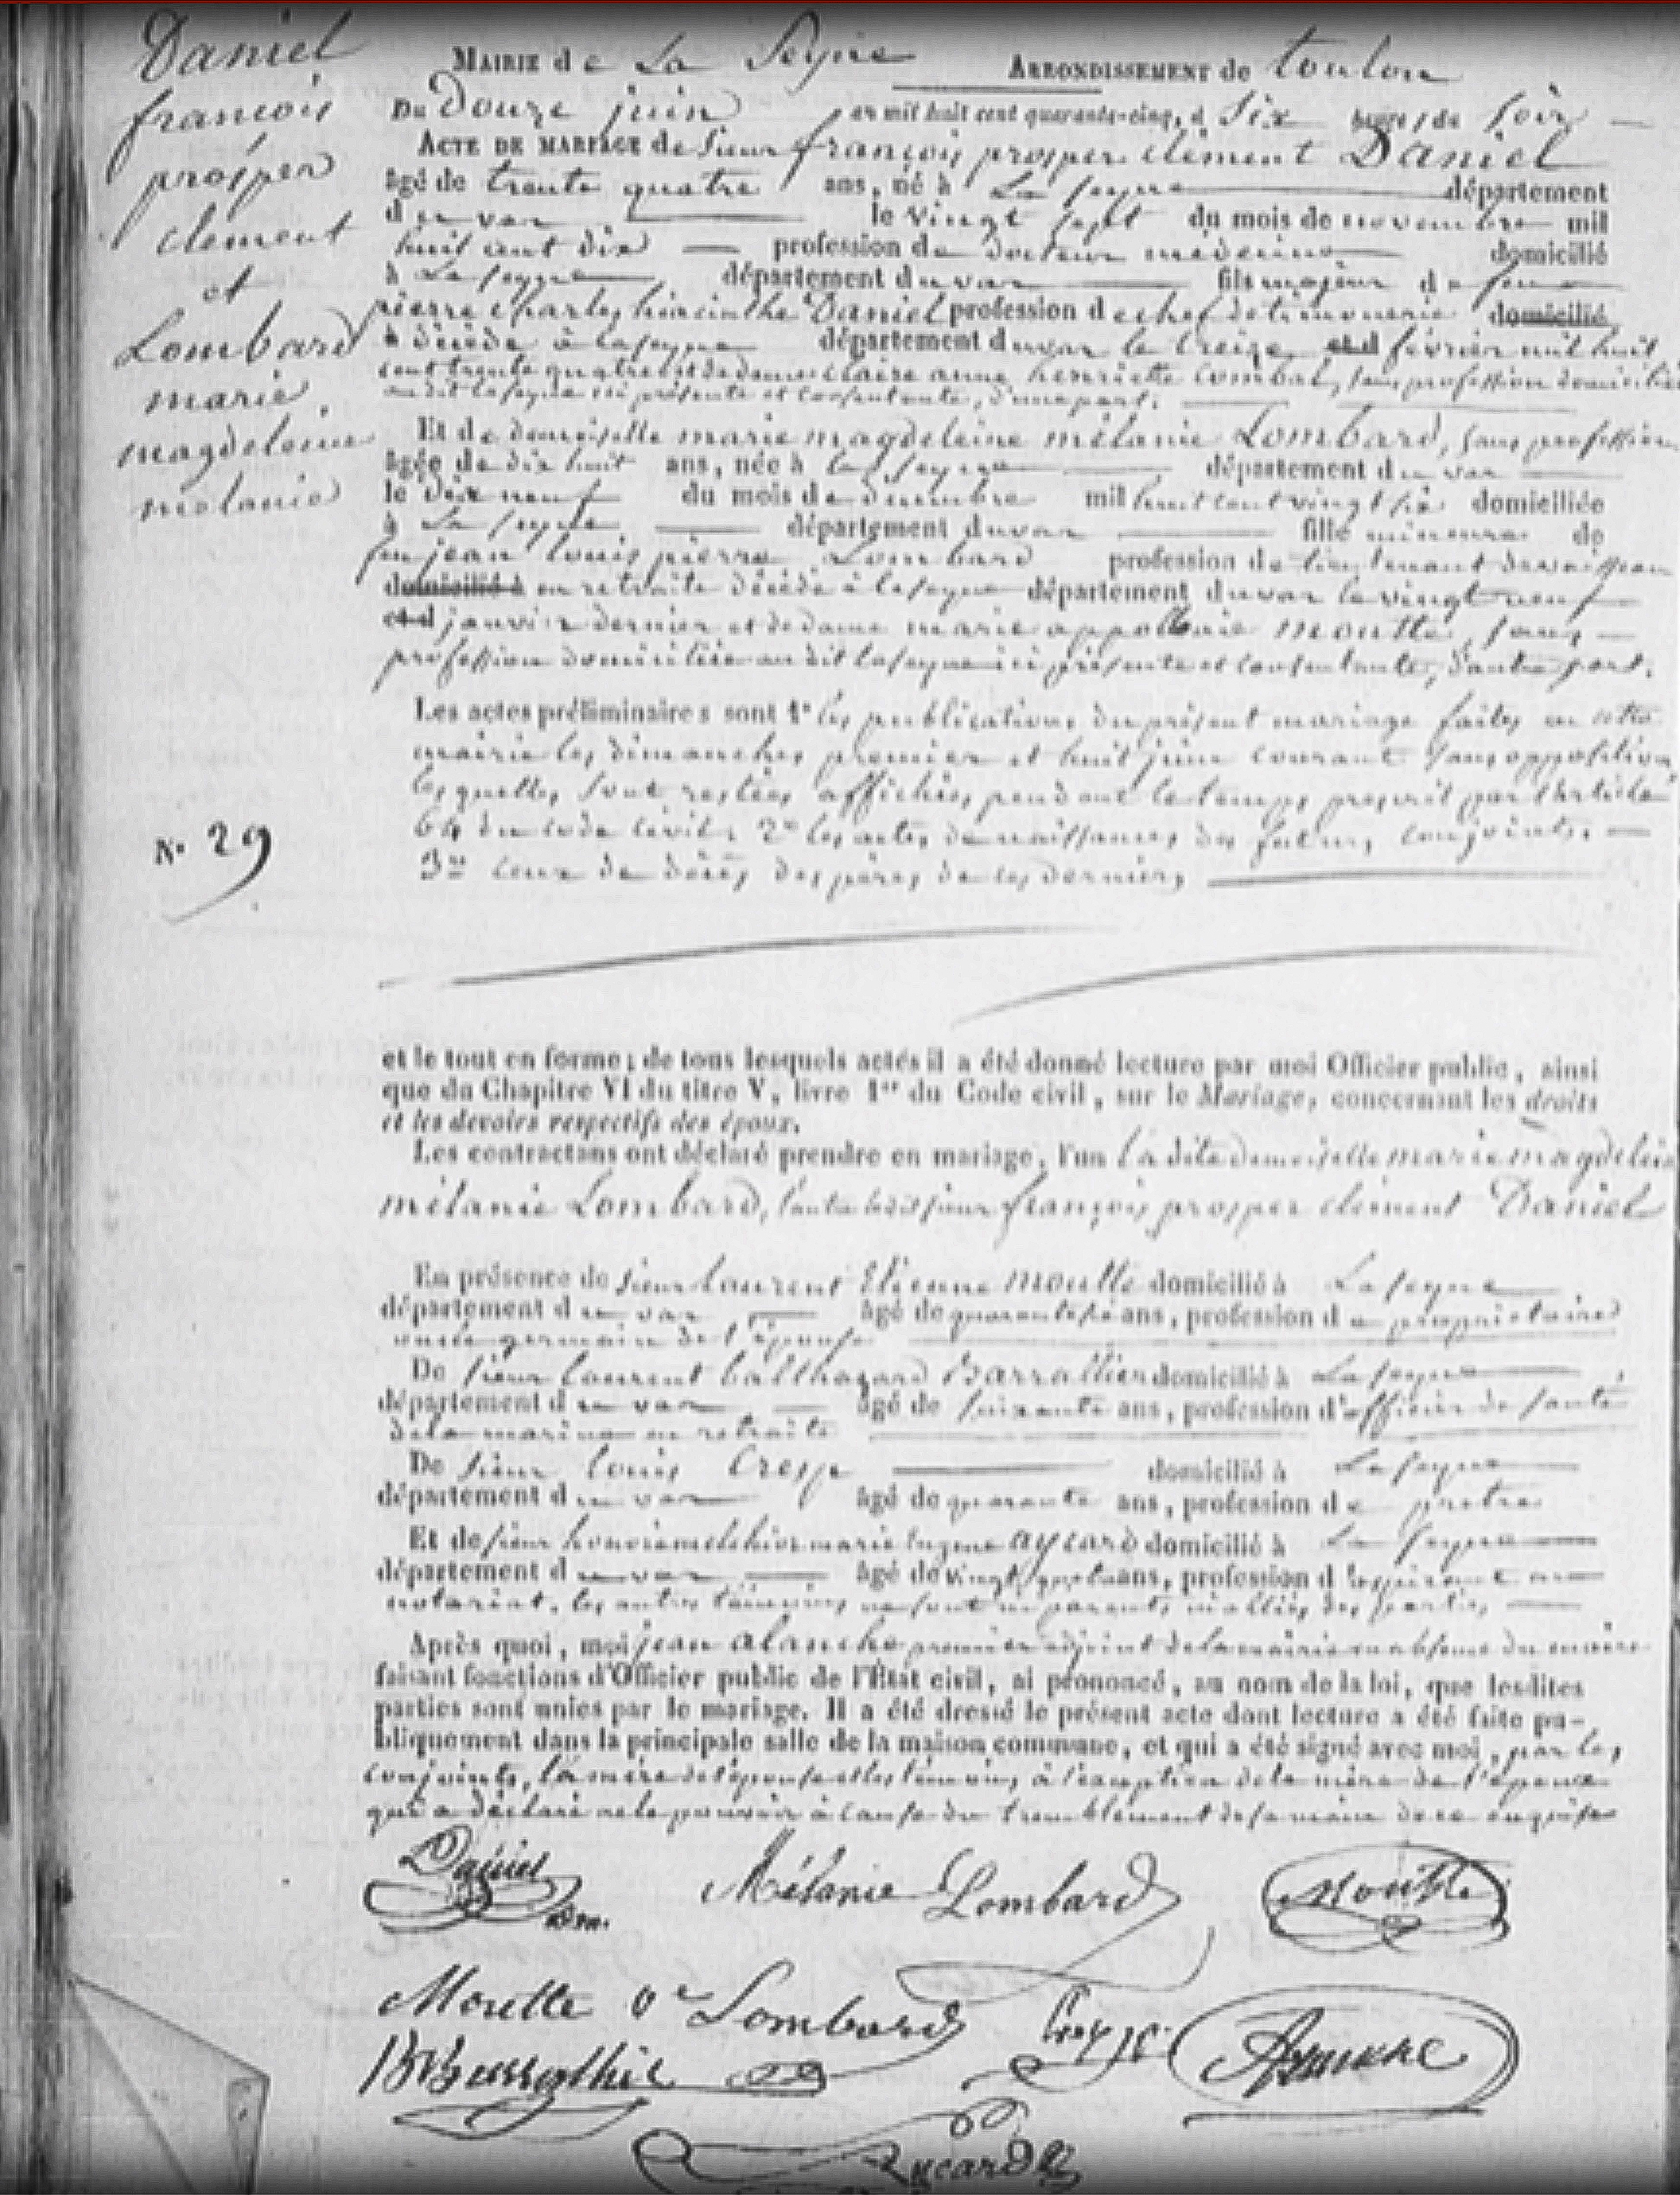 Daniel
françois
prosper
clement
et
Lombard
marie
magdeleine
mélanie
N.° 29
MAIRIE de La Seyne ARRONDISSEMENT de toulon
Du Douze juin an mil huit cent quarante-cinq, à Six heures du soir
ACTE DE MARIAGE de Sieur françois prosper clément Daniel
âgé de trente quatre ans, né à La seyne département
du var le vingt sept du mois de novembre mil
huit cent dix profession de docteur médecin domicilié
à La seyne département du var fils majeur de feu
pierre charles hiacinthe Daniel profession de chef de timonerie domicilié
à décédé à la seyne département du var le treize et d février mil huit
cent trente quatre et de dame claire anne henriette combal, sans profession domiciliée
au dit la seyne ici présente et consentante, d'une part.
Et de demoiselle marie magdeleine mélanie Lombard, sans profession
âgée de dix huit ans, née à la seyne département du var
le dix neuf du mois de décembre mil huit cent vingt six domiciliée
à La seyne département du var fille mineure de
feu jean louis pierre Lombard profession de lieutenant de vaisseau
domicilié à en retraite décédé à la seyne département du var le vingt neuf
et d janvier dernier et de dame marie appollonie moutte, sans
profession domiciliée au dit la seyne ici présente et consentante, d'autre part.
Les actes préliminaires sont 1° les publications du présent mariage faites en cette
mairie les dimanches premier et huit juin courant sans opposition
lesquelles sont restées affichées pendant le temps prescrit par l'article
64 du code civil. 2° les actes de naissances des futurs conjoints.
3° ceux de décès des pères de ces derniers
et le tout en forme; de tous lesquels actes il a été donné lecture par moi Officier public, ainsi
que du Chapitre VI du titre V, livre 1er du Code civil, sur le Mariage, concernant les droits
et les devoirs respectifs des époux.
Les contractans ont déclaré prendre en mariage, l'un la dite demoiselle marie magdeleine
mélanie Lombard, l'autre ledit sieur françois prosper clément Daniel
En présence de sieur laurent Etienne moutte domicilié à La seyne
département du var âgé de quarante six ans, profession de propriétaire
oncle germain de l'épouse
De sieur laurent balthazard Barrallier domicilié à La seyne
département du var âgé de soixante ans, profession d'officier de santé
de la marine en retraite
De sieur louis Cresp domicilié à La seyne
département du var âgé de quarante ans, profession de prêtre
Et de sieur honoré melchior marie eugene aycard domicilié à La seyne
département du var âgé de vingt quatre ans, profession d'aspirant au
notariat. les autres témoins ne sont ni parents ni alliés des parties
Après quoi, moi jean alanche premier adjoint de la mairie en absence du maire
faisant fonctions d'Officier public de l'État civil, ai prononcé, au nom de la loi, que lesdites
parties sont unies par le mariage. Il a été dressé le présent acte dont lecture a été faite pu-
bliquement dans la principale salle de la maison commune, et qui a été signé avec moi, par les
conjoints, la mère de l'épouse et les témoins, à l'exception de la mère de l'époux
qui a déclaré ne le pouvoir à cause du tremblement de sa main de ce enquise
Daniel
Mélanie Lombard
Moutte
Moutte Ve Lombard
Cresp